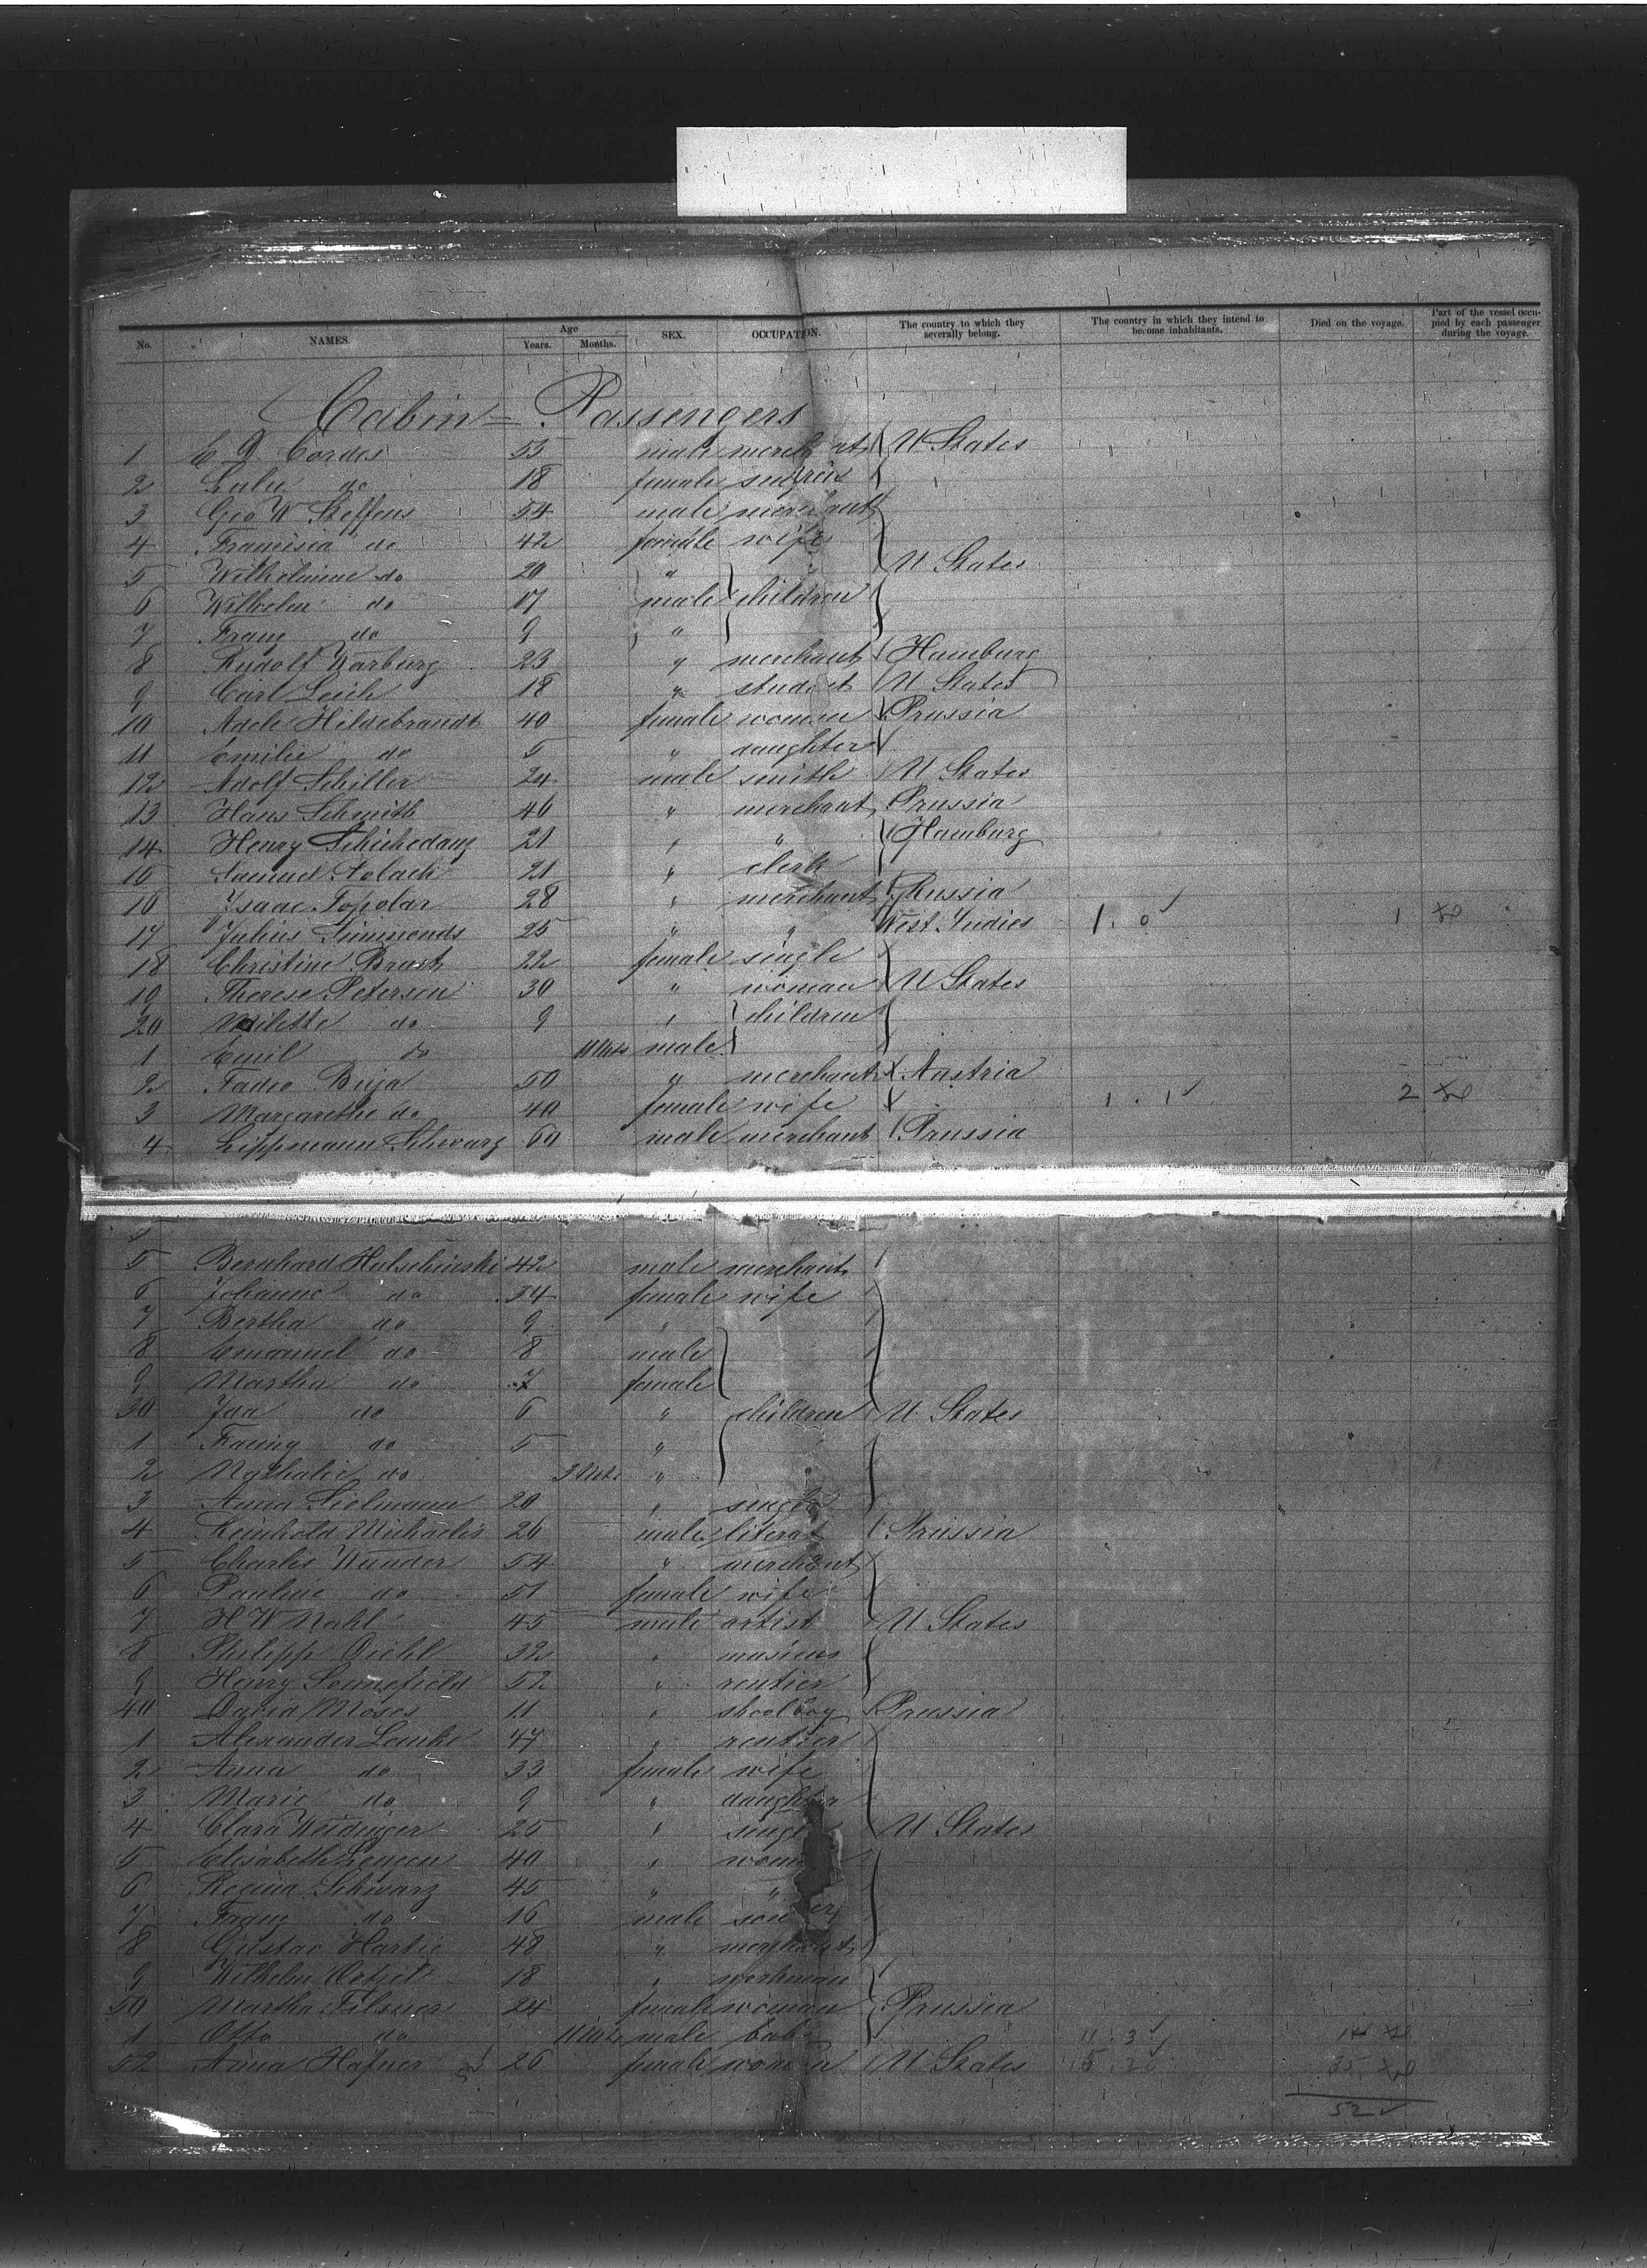 No. NAMES. Age Years. Months. SEX. OCCUPATION. The country to which they severally belong. The country in which they intend to become inhabitants. Died on the voyage. Part of the vessel occupied by each passenger during the voyage.
Cabin = Passengers
1 E Cordes 55 male merchant U States
2 Lulu do 18 female
3 Geo W Steffens 54 male merchant
4 Francisca do 42 female wife
5 Wilhelmine do 20 " U States
6 Wilhelm do 17 male children
7 Franz do 9 "
8 Rudolf Warburg 23 " merchant Hamburg
9 Carl 18 " student U States
10 Adele Hildebrandt 40 female woman Prussia
11 Emilie do 5 " daughter
12 Adolf Schiller 24 male smith U States
13 Hans Schmith 46 " merchant Prussia
14 Henry 21 " " Hamburg
15 Samuel 21 " clerk
16 Isaac Topolar 28 " merchant Russia
17 Julius Simmonds 25 " " West Indies 1 . 0 1
18 Christine 22 female single
19 Therese Petersen 30 " woman U States
20 do 9 " children
1 Emil do 11 Mts male
2 Tadeo 50 " merchant Austria
3 Margarethe do 40 female wife 1 . 1 2
4 Lippmann Schwarz 60 male merchant Prussia
5 Bernhard 42 male merchant
6 Johanne do 34 female wife
7 Bertha do 9 "
8 Emanuel do 8 male
9 Martha do 7 female
30 Ida do 6 " children U States
1 Fanny do 5 "
2 Nathalie do 3 Mts "
3 Anna Sielmann 20 " single
4 Reinhold Michaelis 26 male literat Prussia
5 Charles Wunder 54 " merchant
6 Pauline do 51 female wife
7 H W Nahl 45 male artist U States
8 Philipp Diehl 32 " musicus
9 Henry Sonnefield 52 " rentier
40 David Moses 11 " shoolboy Prussia
1 Alexander Lemke 47 " rentier
2 Anna do 33 female wife
3 Marie do 9 " daughter
4 Clara Weidinger 25 " single U States
5 Elisabeth 40 " woman
6 Regina Schwarz 45 " "
7 Franz do 16 male son
8 Gustav Hartig 48 " merchant
9 Wilhelm 18 " workman
50 Martha 24 female woman Prussia
1 Otto do 11 Mts male baby 11 . 3 14
52 Anna Hafner 26 female woman U States 35
52